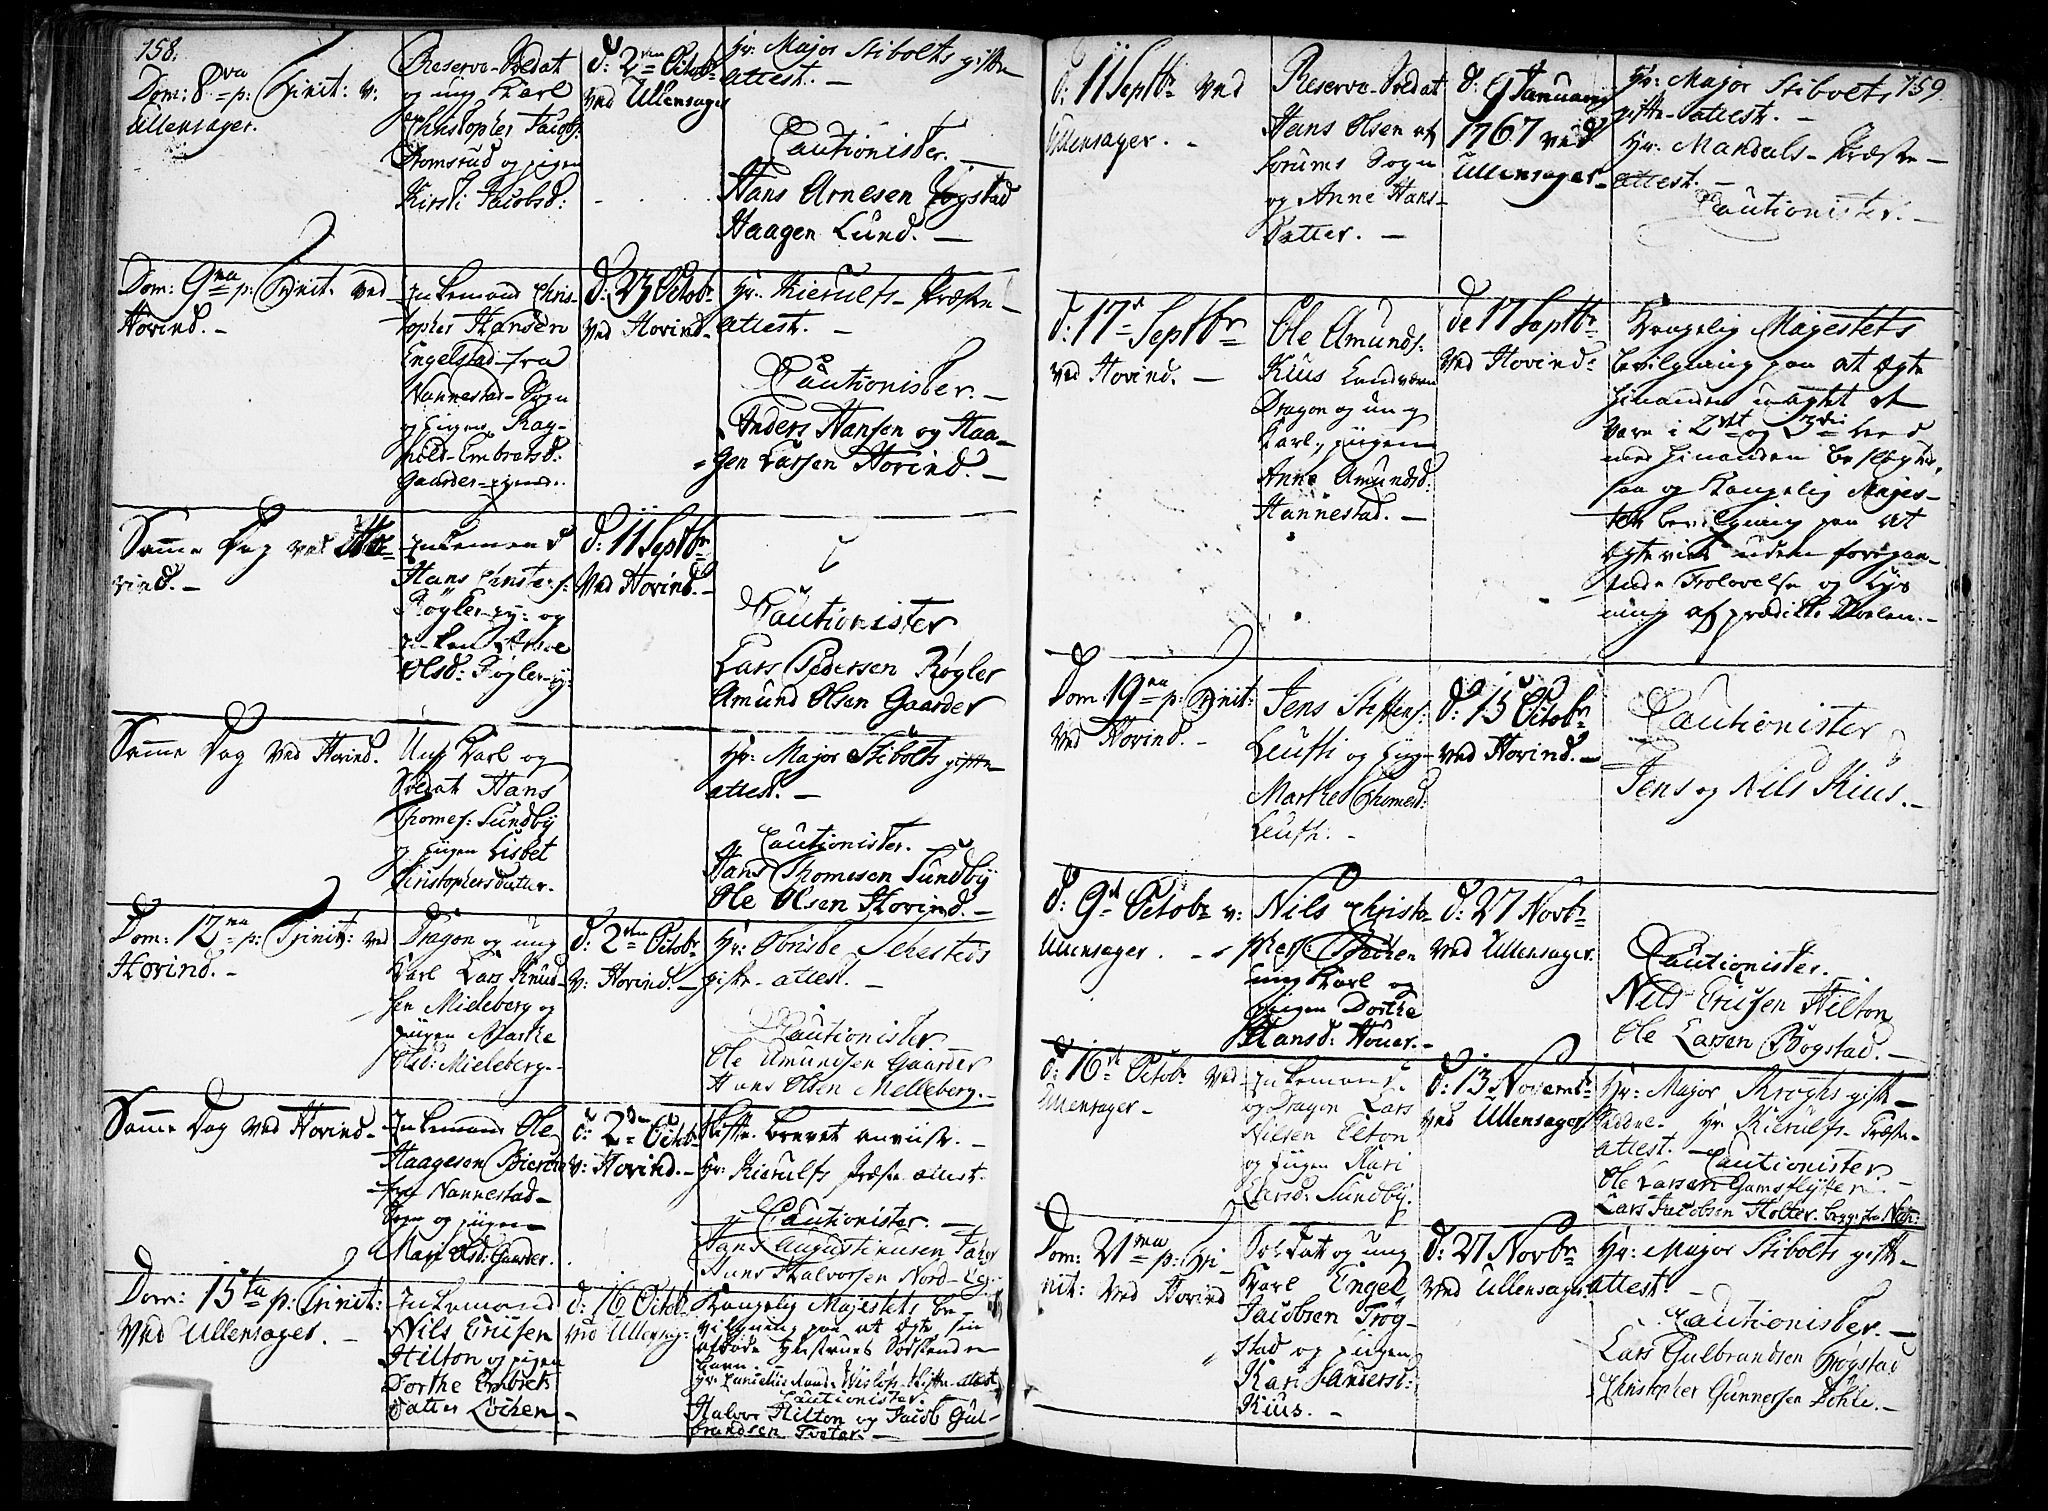 158.
Dom: 8va p: Trinit: v:
Ullensager.
Reserve-Soldat
og ung Karl
Christopher Jacobs:
Stomsrud og pigen
Kirsti Jacobsd:
d: 2den Octobr
ved Ullensager
Hr: Major Stibolts gifte
attest. —
Cautionister. —
Hans Arnesen Bogstad
Haagen Lund. —
Dom: 9na p: Trinit: ved
Hovind. —
Enkemand Chris-
topher Hansen
Engelstad fra
Nannestad-Sogn
og pigen Rag-
nild Embretsd:
Gaarder-eyend.
d: 23 Octobr
ved Hovind. —
Hr: Kierulfs Præste-
attest. —
Cautionister. —
Anders Hansen og Haa-
gen Larsen Hovind. —
Samme Dag ved Ho-
vind. —
Enkemand
Hans Christens:
Røgler-ey: og
Enken
Olsd: Røgler-ey:
d: 11 Septbr
ved Hovind. —
Cautionister
Lars Pedersen Røgler
Amund Olsen Gaarder
Samme Dag ved Hovind.
Ung Karl og
Soldat Hans
Thomes: Sundby
og pigen Lisbet
Christophersdatter.
Hr: Major Stibolts gifte
attest. —
Cautionister.
Hans Thomesen Sundby
Ole Olsen Hovind. —
Dom: 12ma p: Trinit: ved
Hovind. —
Dragon og ung
Karl Lars Knud-
sen Mieleberg og
pigen Marthe
Olsd: Mieleberg. —
d: 2den Octobr
v: Hovind. —
Hr: Obriste Sehesteds
gifte-attest. —
Cautionister.
Ole Amundsen Gaarder
Hans Olsen Melleberg. —
Samme Dag ved Hovind —
Enkemand Ole
Haagesen Bierche
fra Nannestad-
Sogn og pigen
Mari Olsd: Gaarder.
d: 2den Octobr
v: Hovind. —
Skifte-Brevet anviist. —
Hr: Kierulfs Præste attest.
Cautionister. —
Hans Augustinusen
Hans Halvorsen Nord-
Dom: 15ta p: Trinit:
ved Ullensager. —
Enkemand
Nils Erissen
Hilton og pigen
Dorthe Embrets
datter Løchen —
d: 16 Octobr
ved Ullensag:
Kongelig Majestets be-
vilgning paa at ægte sin
afdøde Hustrues Sødskende
barn.
Skifte-attest
Cautionister.
Halvor Hilton og Jacob Gul-
brandsen Tveter. —
159.
d: 11 Septbr ved
Ullensager. —
Reserve-Soldat
Hans Olsen af
Sørums Sogn
og Anne Hans-
datter. —
d: 9 January
1767 ved
Ullensager —
Hr: Major Stibolts
gifte-attest. —
Hr: Mandals-Præste-
attest. —
Cautionister. —
d: 17de Septbr
ved Hovind. —
Ole Amunds:
Kius Landværn
Dragon og ung
Karl, pigen
Anne Amundsd:
Hannestad. —
de 17 Septbr
ved Hovind:
Kongelig Majestets
bevilgning paa at ægte
hinanden uagtet at
være i 2det og 3die Leed
med hinanden beslægtede,
saa og Kongelig Majes-
tets bevilgning paa at
ægtevies uden foregaa-
ende Trolovelse og Lys
ning af prædike Stoelen. —
Dom: 19na p: Trinit:
ved Hovind. —
Jens Steffens:
Leuthi og pig-
Marthe Thomesd:
Leuth: —
d: 15 Octobr
ved Hovind. —
Cautionister
Jens og Nils Kius. —
d: 9de Octobr v:
Ullensager. —
Nils Christo-
phers: Bachen
ung Karl og
pigen Dorthe
Hansd: Houer. —
d: 27 Novbr
ved Ullensager.
Cautionister.
Nils Erissen Hilton
Ole Larsen Bogstad. —
d: 16de Octobr ved
Ullensager —
Enkemand
og Dragon Lars
Nilsen Elton
og pigen Kari
Sundby.
d: 13 Novembr
ved Ullensager
Hr: Major Kroghs gifte-
Seddel. Hr: Kierulfs-Præste-
attest. — Cautionister
Ole Larsen —
Lars Jacobsen Holter. begge fra
Dom: 21ma p: Tri-
nit: ved Hovind
Soldat og ung
Karl Engel
Jacobsen Trog-
stad og pigen
Kari Sandersd:
Kius. —
d: 27 Novbr
ved Ullensager
Hr: Major Stibolts gifte-
attest. —
Cautionister. —
Lars Gulbrandsen Trøgstad
Christopher Gunnersen Døhli. —